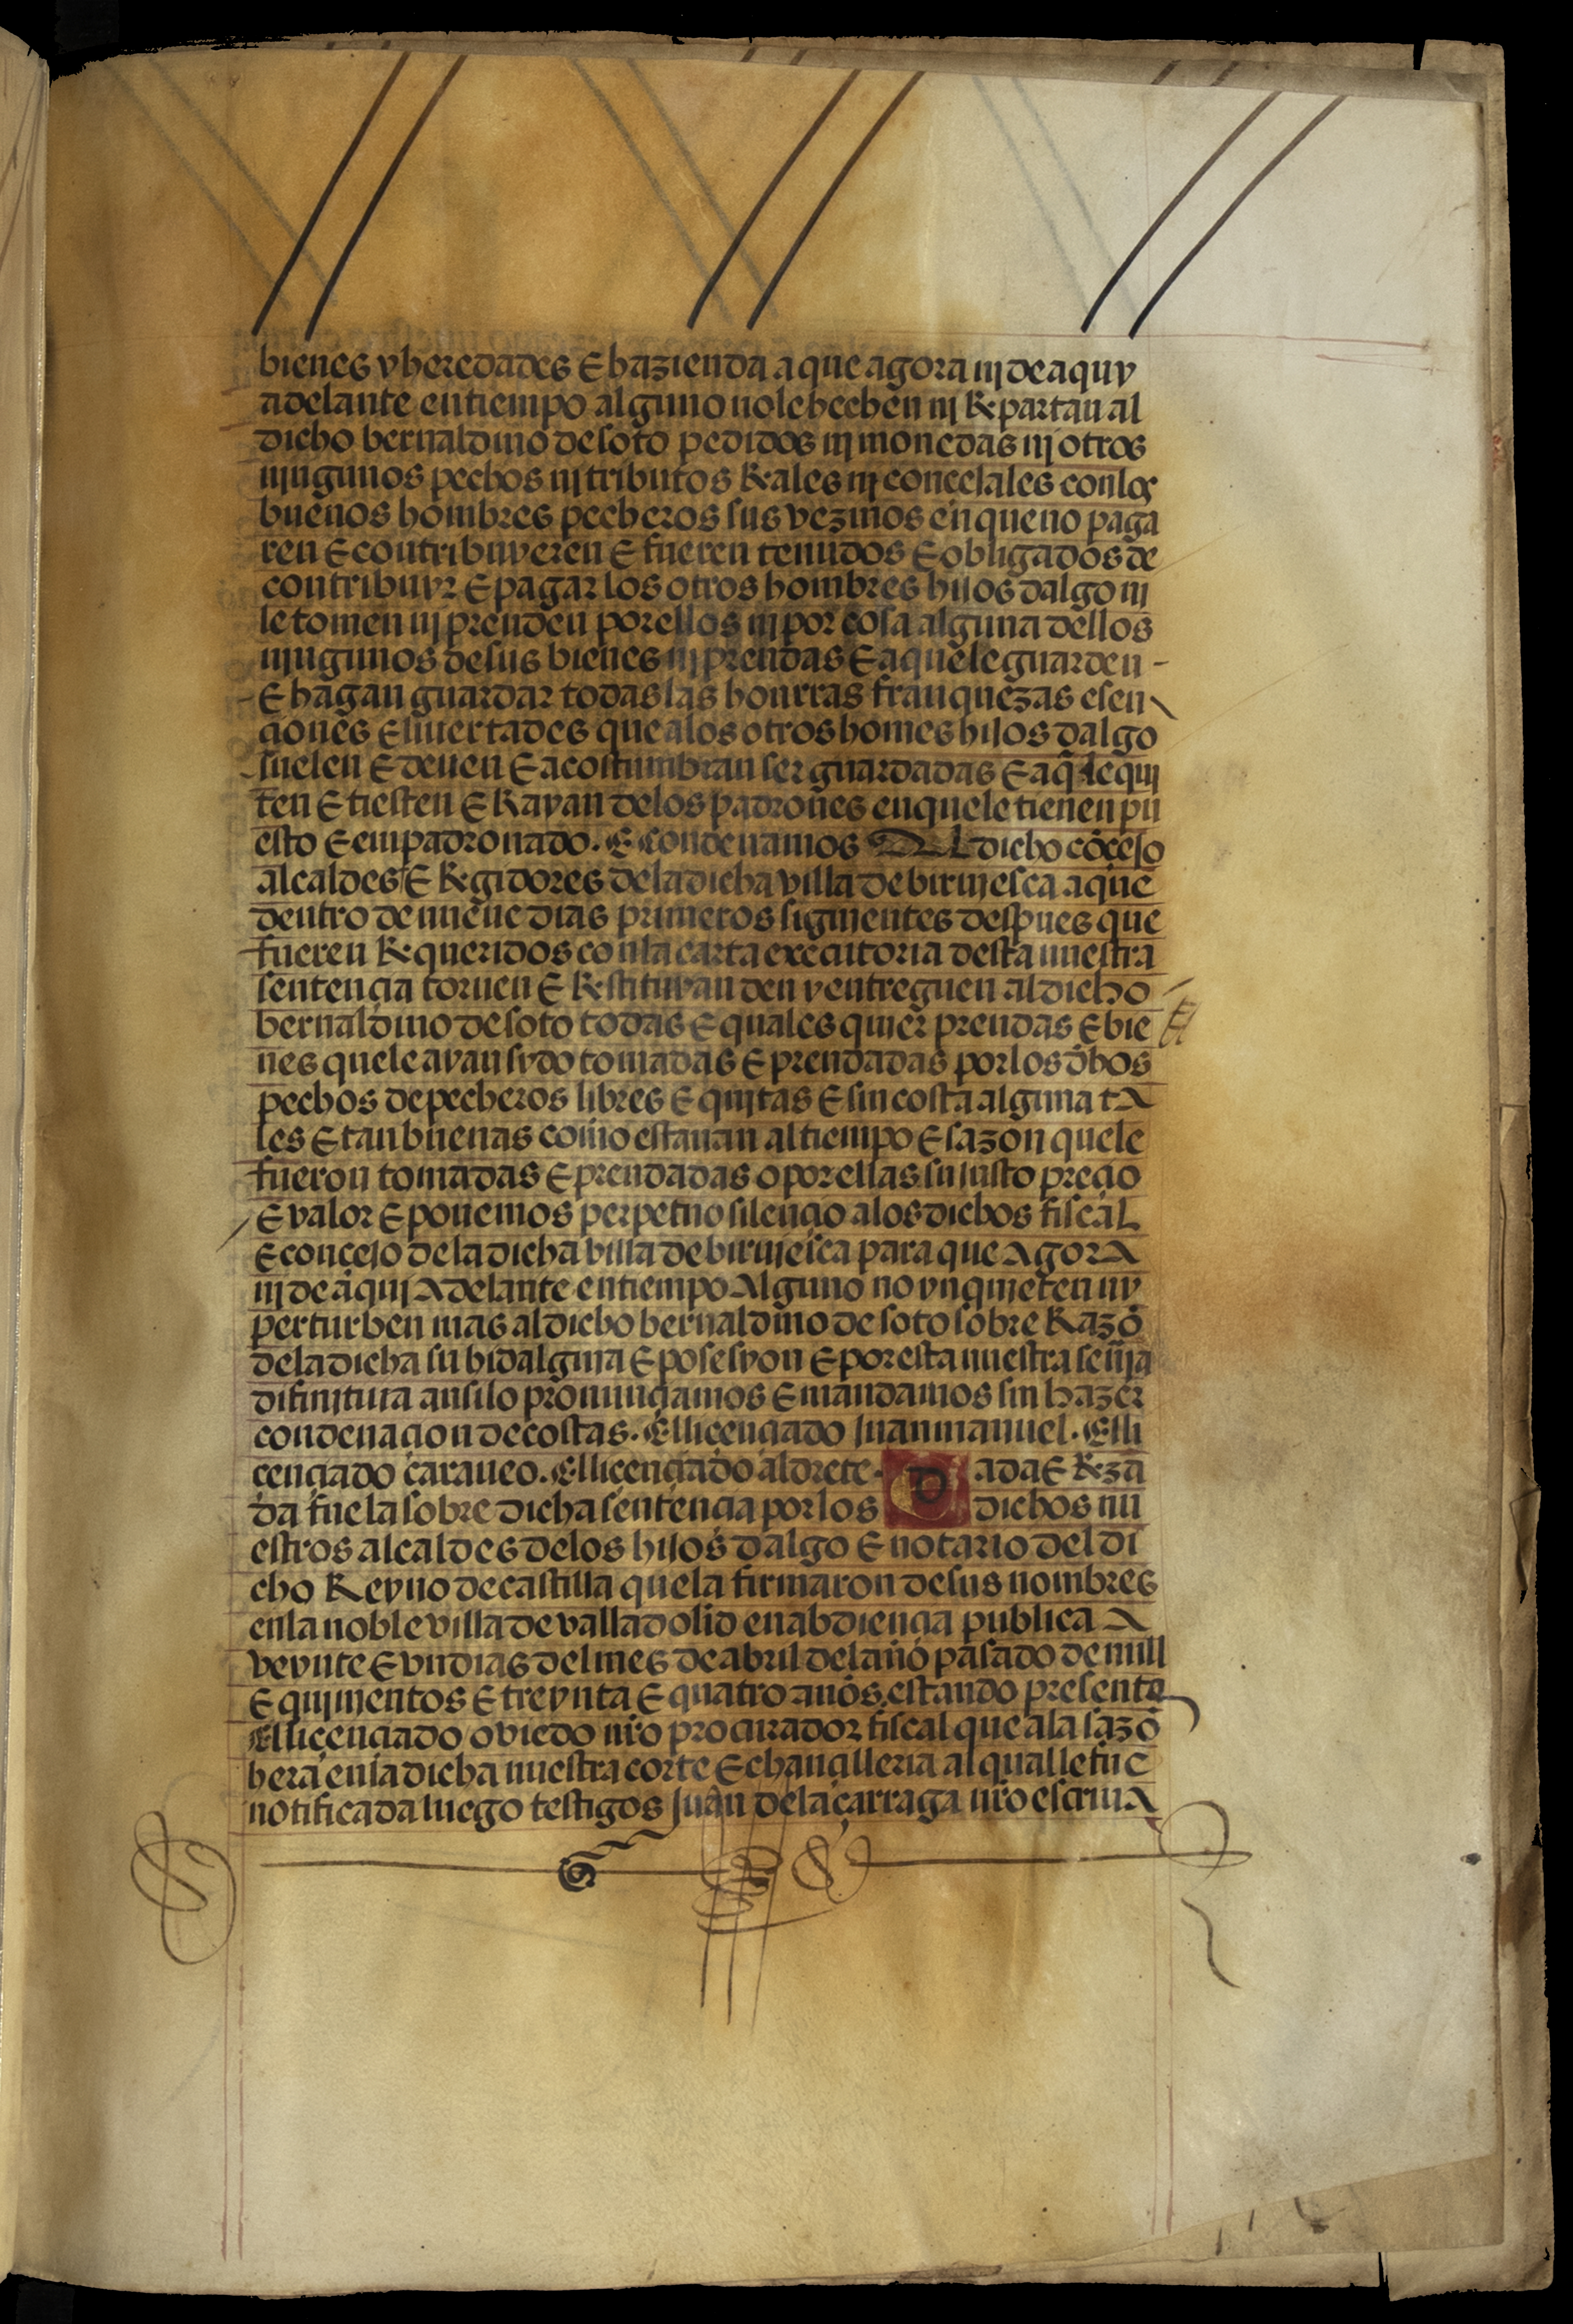 bienes y heredades E hazienda a que agora nj de aquy
adelante en tiempo alguno no le hechen nj Repartan al
dicho bernaldino de soto pedidos nj monedas nj otros
njngunos pechos nj tributos Reales nj concejales con los
buenos hombres pecheros sus vezinos en que no paga
ren E contribuyeren E fueren tenudos E obligados de
contribuyr E pagar los otros hombres hijos dalgo nj
le tomen nj prenden por ellos nj por cosa alguna dellos
njngunos de sus bienes nj prendas E a que le guarden -
E hagan guardar todas las honrras franquezas esen
çiones E livertades que a los otros homes hijos dalgo
suelen E deven E acostumbran ser guardadas E a q̄ le qui
ten E tiesten E Rayan de los padrones en que le tienen pu
esto E empadronado. E condenamos Al dicho cōcejo
alcaldes E Regidores de la dicha villa de birujesca a que
dentro de nueve dias primeros sigujentes despues que
fueren Requeridos con la carta executoria desta nuestra
sentençia tornen E Restituyan den y entreguen al dicho
bernaldino de soto todas E quales quier prendas E bie
nes que le ayan sydo tomadas E prendadas por los dhos
pechos de pecheros libres E qujtas E sin costa alguna tA
les E tan buenas como estauan al tiempo E sazon que le
fueron tomadas E prendadas o por ellas su justo preçio
E valor E ponemos perpetuo silençio a los dichos fiscal
E concejo de la dicha villa de birujesca para que AgorA
nj de aquj Adelante en tiempo Alguno no ynqujeten ny
perturben mas al dicho bernaldino de soto sobre Razō
de la dicha su hidalguja E posesyon E por esta nuestra senīja
difinjtiva ansi lo pronunçiamos E mandamos sin hazer
condenaçion de costas. El liçençiado juan manuel. El li
cençiado çaraueo. El liçençiado aldrete. Dada E Reza
da fue la sobre dicha sentençia por los dichos nu
estros alcaldes de los hijos dalgo E notario del di
cho Reyno de castilla que la firmaron de sus nombres
en la noble villa de valladolid en abdiençia publica A
veynte E vn dias del mes de abril del año pasado de mill
E qujnientos E treynta E quatro años. estando presente
El liçençiado oviedo nr̄o procurador fiscal que a la sazō
hera en la dicha nuestra corte E chançilleria al qual le fue
notificada luego testigos juan de laçarraga nr̄o escriuA